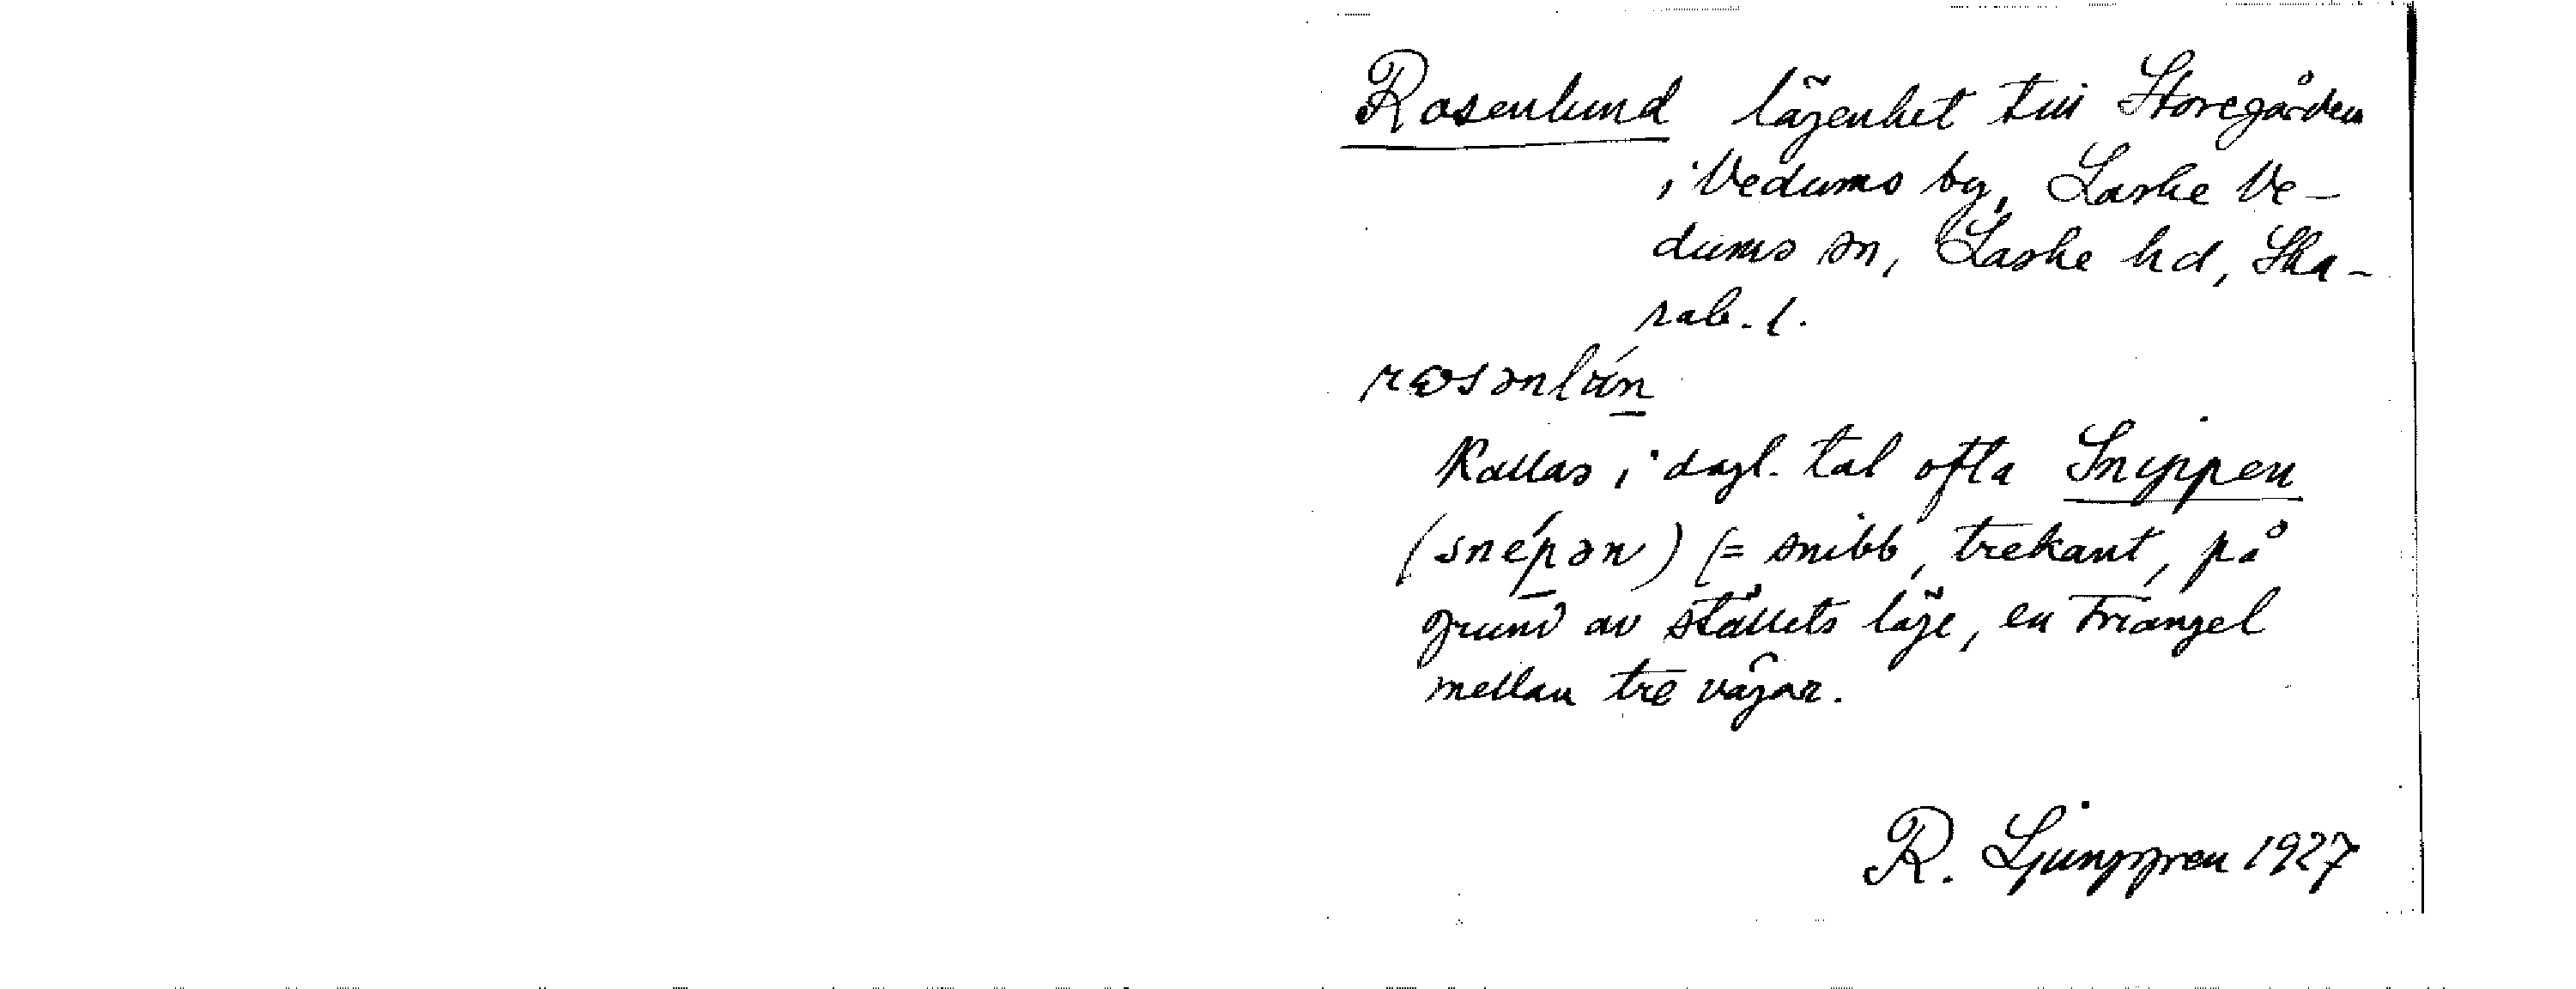 Rosenlund lägenhet till Storegården
i Vedums by, Laske Ve-
dums sn, Laske hd, Ska-
rab. l.
rꙍsənlún
Kallas i dagl. tal ofta Snippen
(snépən) (= snibb, trekant, på
grund av ställets läge, en triangel
mellan tre vägar.
R. Ljunggren 1927